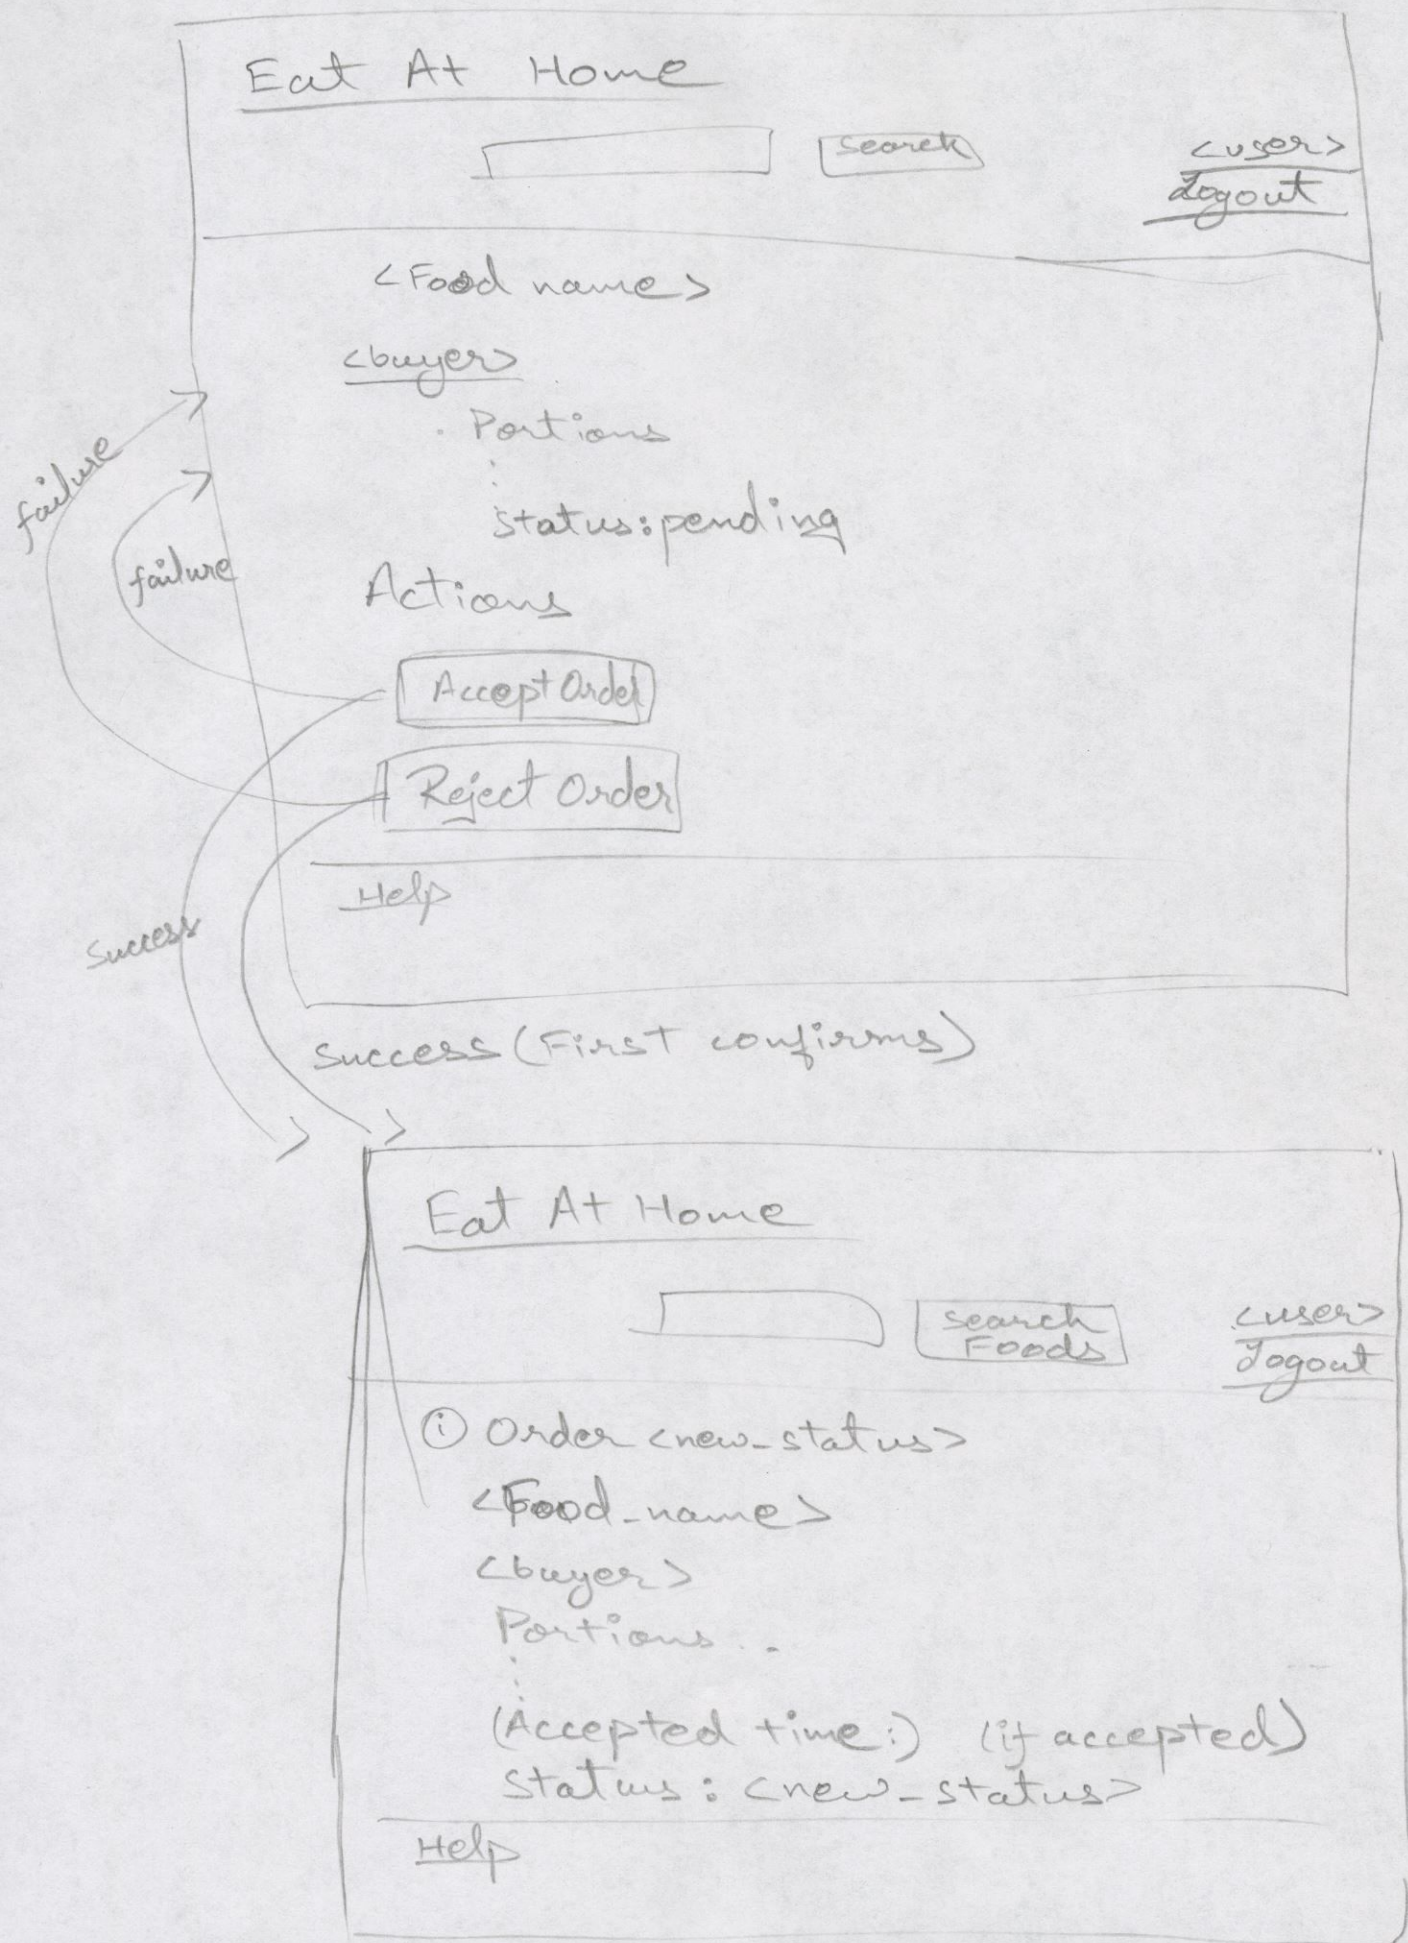 Eat At Home
Search
<user>
Logout
<Food name>
<buyer>
. Portions
Status: pending
failure
failure
Actions
Accept Order
Reject Order
Help
Success
Success (First confirms)
Eat At Home
Search
Foods
<user>
Logout
i Order <new_status>
<Food_name>
<buyer>
Portions ..
(Accepted time:) (if accepted)
Status: <new_status>
Help